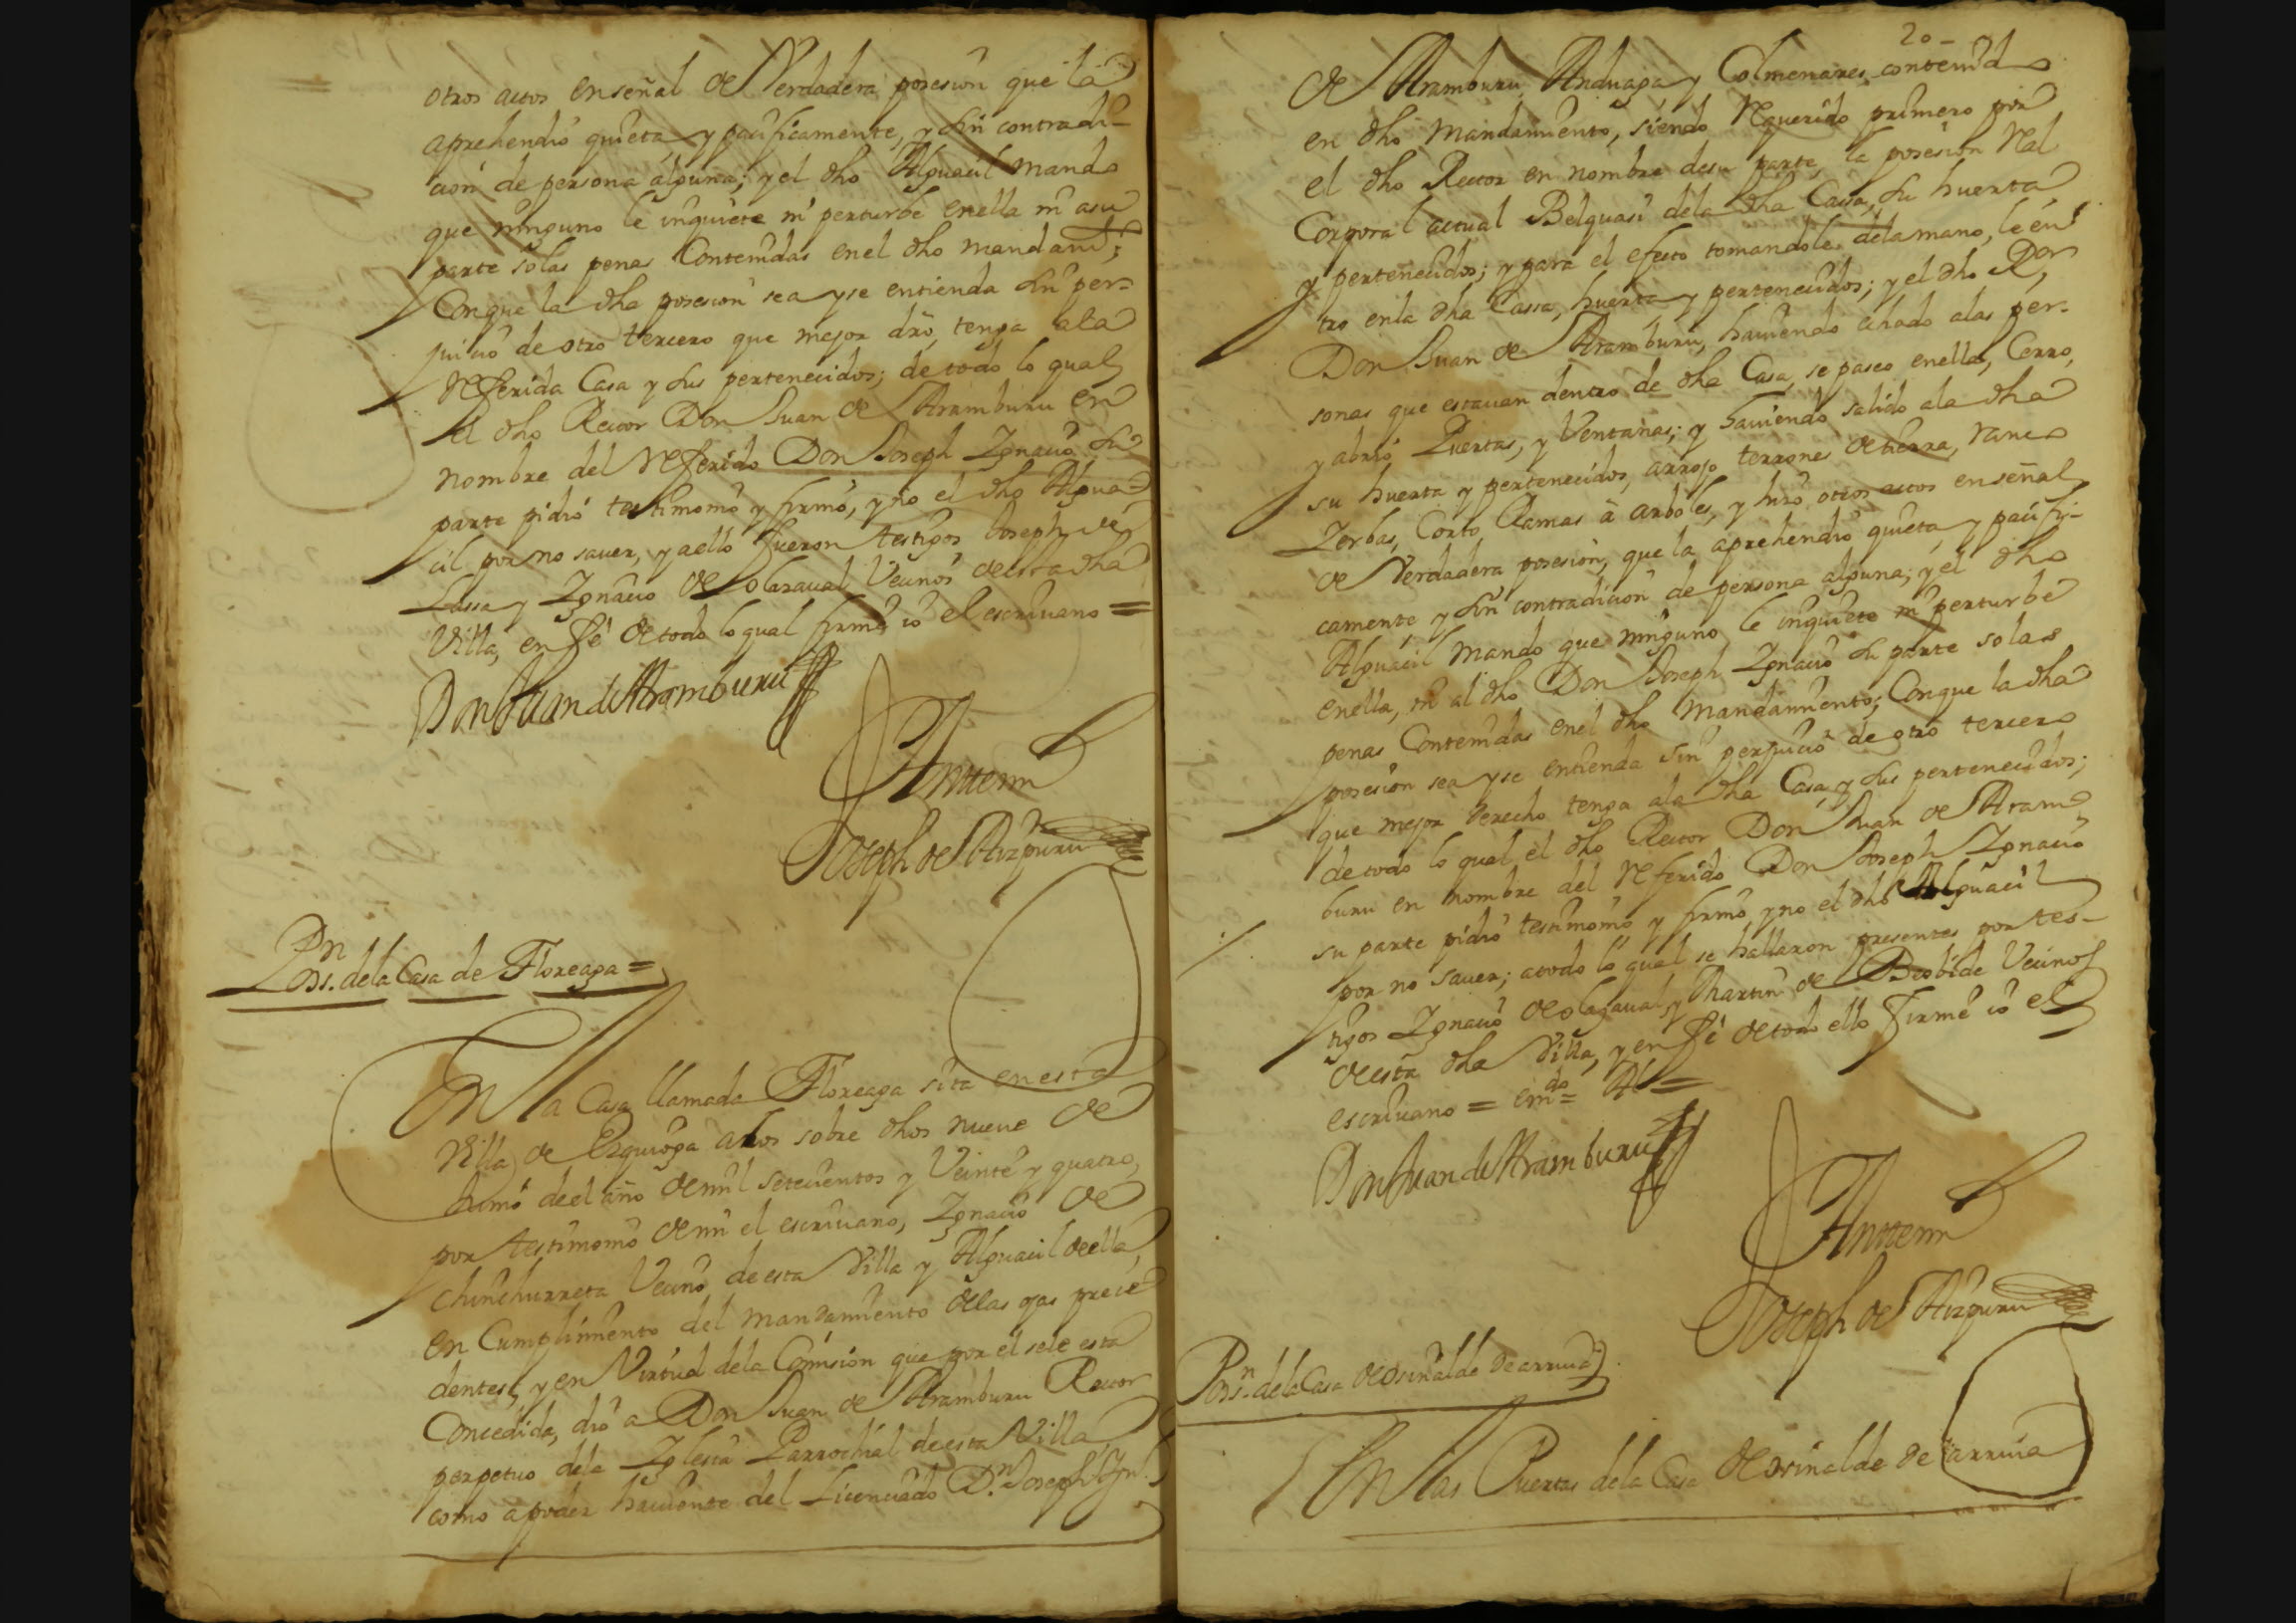 otros actos en señal de Verdadera posesion que la
aprehendió quieta y pacificamente, y sin contradi-
cion de persona alguna; y el dho Alguacil mando
que ninguno le inquiete ni perturbe en ella ni a su
parte so las penas Contenidas en el dho mandamto;
Con que la dha posesion sea y se entienda sin per-
juicio de otro tercero que mejor dro, tenga a la
referida Casa y sus pertenecidos; de todo lo qual
el dho Rector Don Juan de Aramburu en
nombre del referido Don Joseph Ygnacio su
parte pidió testimonio y firmó, y no el dho Algua-
cil por no saver, y a ello fueron testigos Joseph de
Lassa y Ygnacio de Olazaval Vecinos de esta dha
Villa, en fé de todo lo qual firmé io el escrivano =
Don Juan de Aramburu
Antte mi
Joseph de Aizpuru
Posn. de la Casa de Floreaga =
En la Casa llamada Floreaga sita en esta
Villa de Ezquioga a los sobre dhos nueve de
Junio de el año de mil setecientos y Veinte y quatro,
por testimonio de mi el escrivano, Ygnacio de
Chinchurreta Vecino de esta Villa y Alguacil de ella,
en Cumplimiento del mandamiento de las ojas prece-
dentes, y en Virtud de la Comision que por el se le esta
Concedida, dió a Don Juan de Aramburu Rector
perpetuo de la Yglesia Parrochial de esta Villa
como a poder haviente del Licenciado Dn. Joseph Ygn.
20-
de Aramburu, Anduaga y Colmenares contenido
en dho mandamiento, siendo requerido primero por
el dho Rector en nombre de su parte, la posesion Real
Corporal actual Belquasi de la dha Cassa, su huerta
y pertenecidos; y para el efecto tomandole de la mano, le en-
tro en la dha Cassa, huerta y pertenecidos; y el dho Ror,
Don Juan de Aramburu, haviendo echado a las per-
sonas que estavan dentro de dha Casa, se paseo en ella, Cerro,
y abrió Puertas, y Ventanas; y haviendo salido a la dha
su huerta y pertenecidos, arrojo terrones de tierra, ranco
Yerbas, Corto Ramas à arboles, y hizo otros actos en señal
de Verdadera posesion, que la aprehendió quieta y pacifi-
camente y sin contradicion de persona alguna; y el dho
Alguacil mando que ninguno le inquiete ni perturbe
en ella, ni al dho Don Joseph Ygnacio su parte so las
penas Contenidas en el dho Mandamiento; Con que la dha
posesion sea y se entienda sin perjuicio de otro tercero
que mejor derecho tenga a la dha Casa y sus pertenecidos;
de todo lo qual el dho Rector Don Juan de Aram-
buru en nombre del referido Don Joseph Ygnacio
su parte pidió testimonio y firmó y no el dho Alguacil
por no saver; a todo lo qual se hallaron presentes por tes-
tigos Ygnacio de Olazaval y Martin de Beobide Vecinos
de esta dha Villa, y en fé de todo ello firmé io el
escrivano = emdo = Al =
Don Juan de Aramburu
Antte mi
Joseph de Aizpuru
Posn. de la Casa de Osinalde de arriva
En las Puertas de la Casa de Osinalde de arriva